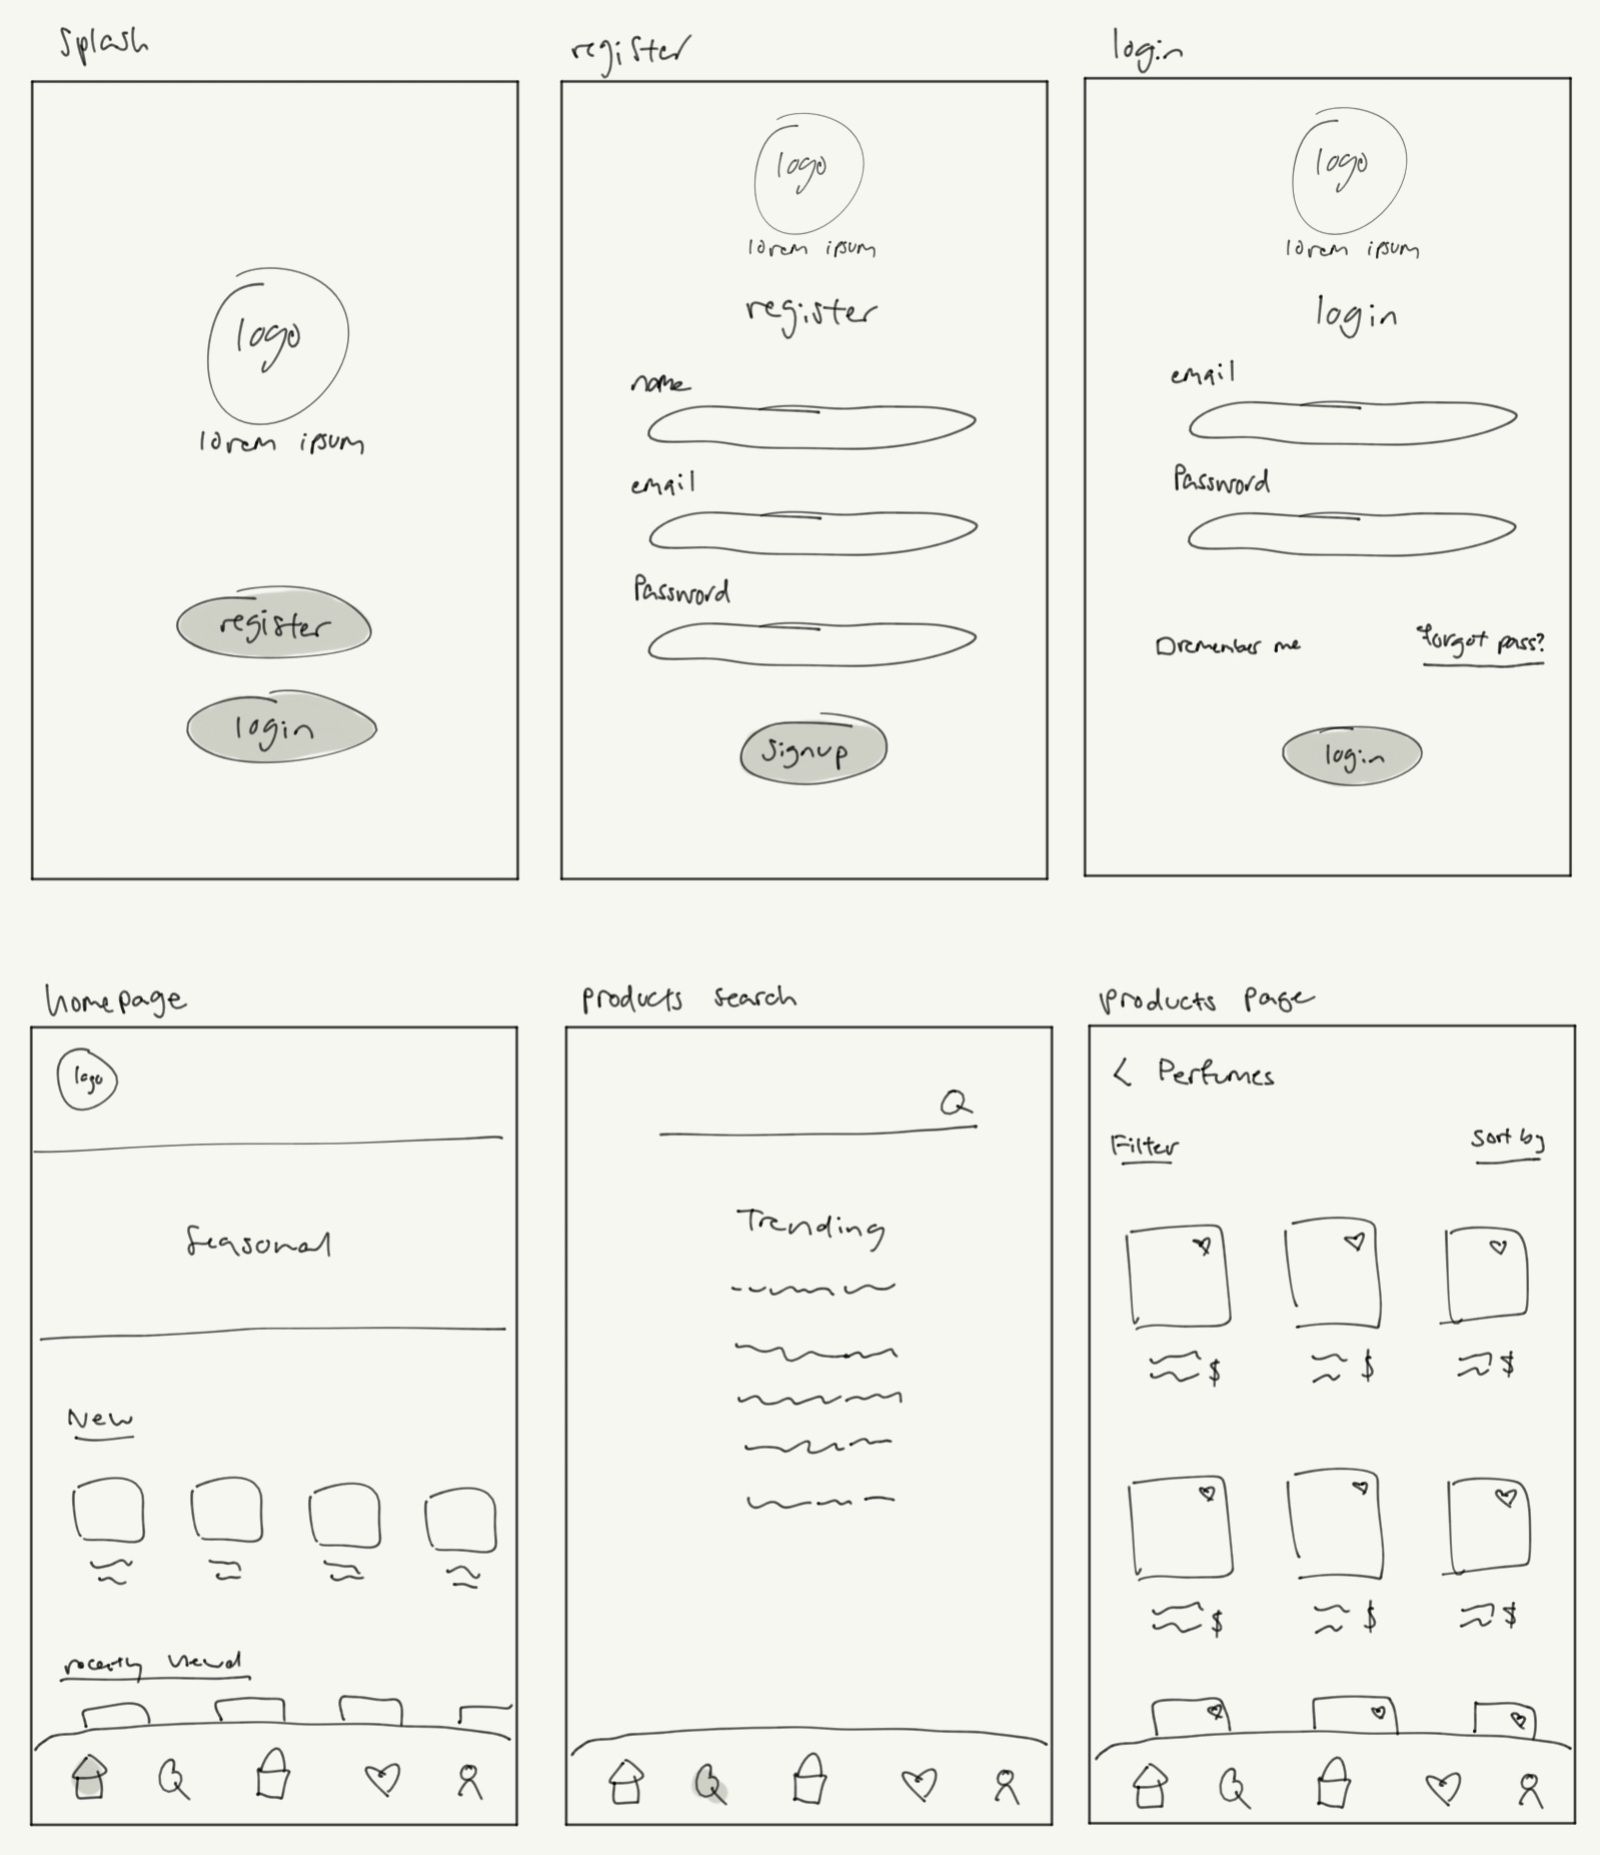 splash
logo
lorem ipsum
register
login
register
logo
lorem ipsum
register
name
email
Password
signup
login
logo
lorem ipsum
login
email
Password
remember me
forgot pass?
login
homepage
logo
Seasonal
New
recently viewed
products search
Trending
products page
< Perfumes
Filter
Sort by
$ $ $
$ $ $